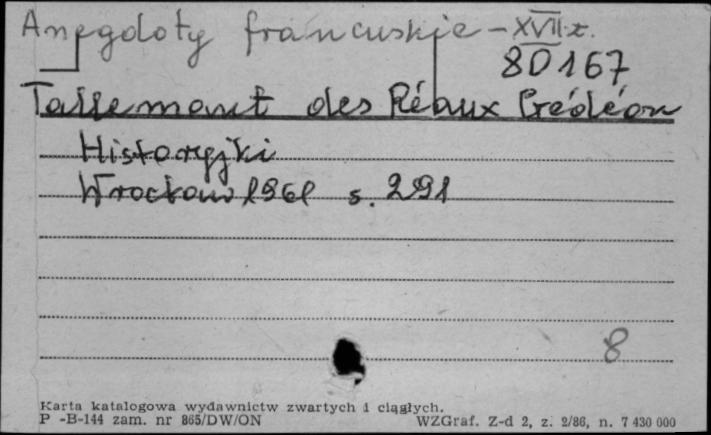 Anegdoty francuskie - XVII z.
80167
Tallemant des Réaux Gédéon
Historyjki
Wrocław 1961 s. 291
8
Karta katalogowa wydawnictw zwartych i ciągłych.
P -B-144 zam. nr 865/DW/ON WZGraf. Z-d 2, z. 2/86, n. 7 430 000